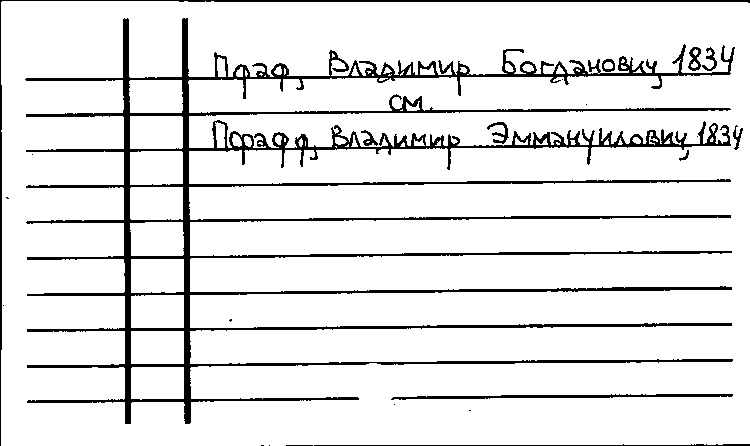 Пфаф, Владимир Богданович, 1834
см.
Пфафф, Владимир Эммануилович, 1834